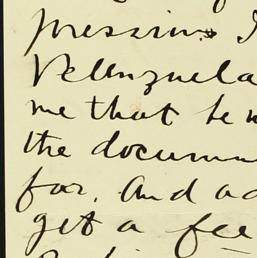 pressions I
Vellnzuela
me that he w
the docum
for. And ad
get a fee